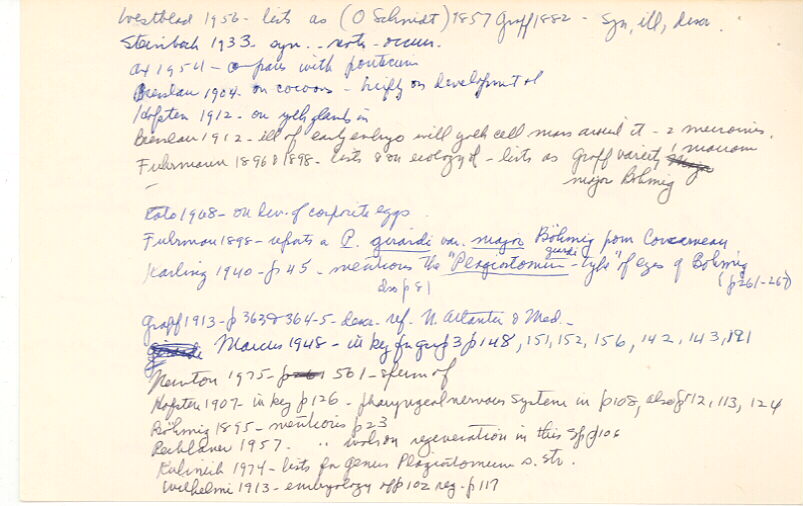 Westblad 1956 - lists as (O Schmidt) 1857 Graff 1882 - syn, ill, descr.
Steinböck 1933 - syn. - note - occurr.
Ax 1954 - compares with ponticum
Bresslau 1904 - on cocoons - briefly on development of
Hofsten 1912 - on yolk glands in
Bresslau 1912 - ill of early embryo with yolk cell mass around it - 2 mentions.
Fuhrmann 1896 & 1898 - lists & on ecology of - lists as Graff variety 1 major
major Böhmig
Kato 1968 - on dev. of composite eggs
Fuhrman 1898 - reports a P. girardi var. major Böhmig from Concarneau
Karling 1940 - p 45 - mentions the "Plagiostomum girardi - type" of eyes of Böhmig
(p 261-267)
also p 81
Graff 1913 - p 363 & 364-5 - descr. ref. N. Atlantic & Med. -
Marcus 1948 - in key for grp 3 p 148, 151, 152, 156, 142, 143, 191
Newton 1975 - p 561 - sperm of
Hofsten 1907 - in key p 126 - pharyngeal nervous system in p 108, also p 112, 113, 124
Böhmig 1895 - mentions p 23
Reisinger 1957 - " work on regeneration in this sp p 106
Kulinich 1974 - lists for genus Plagiostomum s. str.
Wilhelmi 1913 - embryology of p 102 reg. p 117